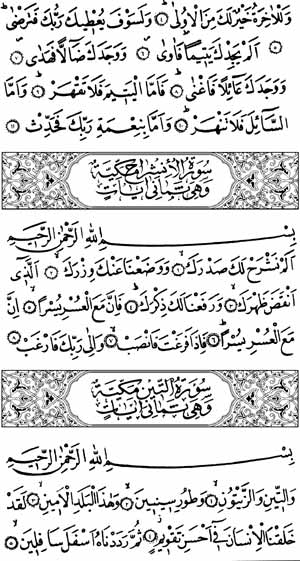 وَلَلْاٰخِرَةُ خَيْرٌ لَّكَ مِنَ الْاُوْلٰى ۝٤ وَلَسَوْفَ يُعْطِيْكَ رَبُّكَ فَتَرْضٰى ۝٥
اَلَمْ يَجِدْكَ يَتِيْمًا فَاٰوٰى ۝٦ وَوَجَدَكَ ضَآلًّا فَهَدٰى ۝٧
وَوَجَدَكَ عَآئِلًا فَاَغْنٰى ۝٨ فَاَمَّا الْيَتِيْمَ فَلَا تَقْهَرْ ۝٩ وَاَمَّا
السَّآئِلَ فَلَا تَنْهَرْ ۝١٠ وَاَمَّا بِنِعْمَةِ رَبِّكَ فَحَدِّثْ ۝١١
سُوْرَةُ الْاِنْشِرَاحِ مَكِّيَّةٌ
وَهِيَ ثَمَانِيْ اٰيَاتٍ
بِسْمِ اللّٰهِ الرَّحْمٰنِ الرَّحِيْمِ
اَلَمْ نَشْرَحْ لَكَ صَدْرَكَ ۝١ وَوَضَعْنَا عَنْكَ وِزْرَكَ ۝٢ الَّذِيْٓ
اَنْقَضَ ظَهْرَكَ ۝٣ وَرَفَعْنَا لَكَ ذِكْرَكَ ۝٤ فَاِنَّ مَعَ الْعُسْرِ يُسْرًا ۝٥ اِنَّ
مَعَ الْعُسْرِ يُسْرًا ۝٦ فَاِذَا فَرَغْتَ فَانْصَبْ ۝٧ وَاِلٰى رَبِّكَ فَارْغَبْ ۝٨
سُوْرَةُ التِّيْنِ مَكِّيَّةٌ
وَهِيَ ثَمَانِيْ اٰيَاتٍ
بِسْمِ اللّٰهِ الرَّحْمٰنِ الرَّحِيْمِ
وَالتِّيْنِ وَالزَّيْتُوْنِ ۝١ وَطُوْرِ سِيْنِيْنَ ۝٢ وَهٰذَا الْبَلَدِ الْاَمِيْنِ ۝٣ لَقَدْ
خَلَقْنَا الْاِنْسَانَ فِيْٓ اَحْسَنِ تَقْوِيْمٍ ۝٤ ثُمَّ رَدَدْنَاهُ اَسْفَلَ سَافِلِيْنَ ۝٥